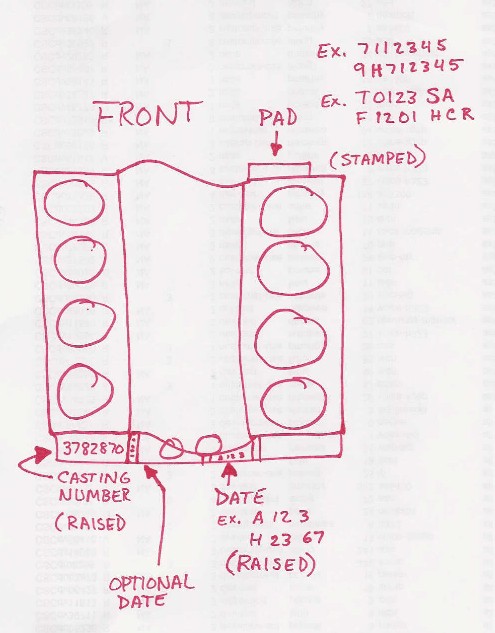 Ex. 7112345
9H712345
Ex. T0123 SA
F1201 HCR
FRONT
PAD
(STAMPED)
3782870
A 12 3
CASTING
NUMBER
(RAISED
DATE
EX. A 12 3
H 23 67
(RAISED)
OPTIONAL
DATE